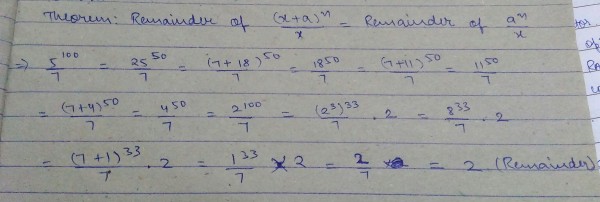 Theorem: Remainder of (x+a)^n/x = Remainder of a^n/x
⇒ 5^100/7 = 25^50/7 = (7+18)^50/7 = 18^50/7 = (7+11)^50/7 = 11^50/7
= (7+4)^50/7 = 4^50/7 = 2^100/7 = (2^3)^33/7 . 2 = 8^33/7 . 2
= (7+1)^33/7 . 2 = 1^33/7 × 2 = 2/7 = 2 (Remainder)